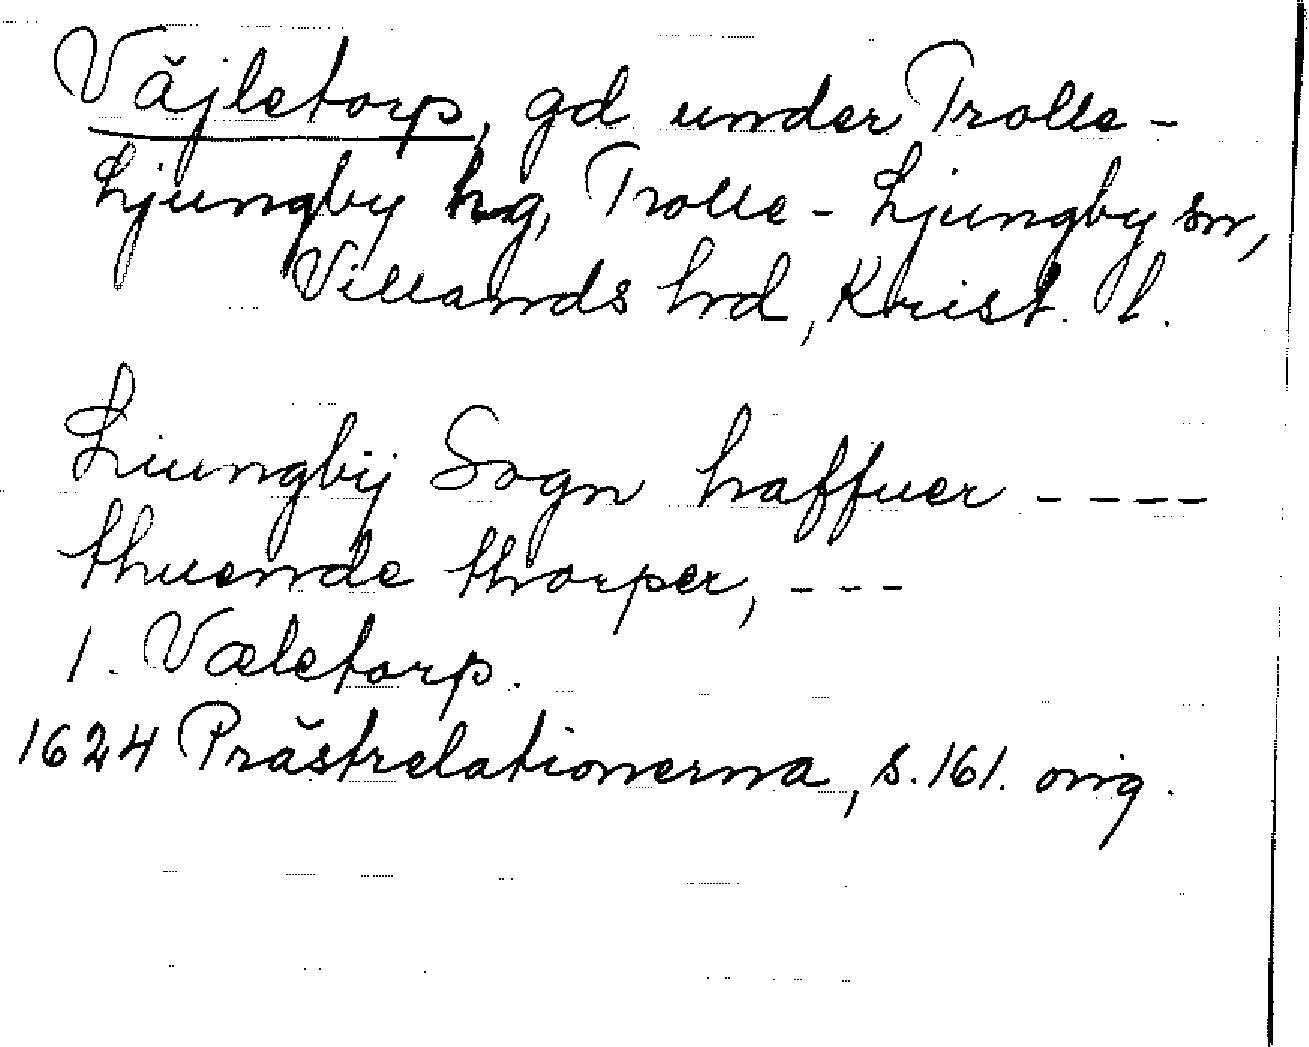 Väjletorp, gd under Trolle-
Ljungby hg, Trolle-Ljungby sn,
Villands hd, Krist. l.
Liungbÿ Sogn haffuer ----
thuende thorper, ---
1. Væletorp.
1624 Prästrelationerna, s. 161. orig.